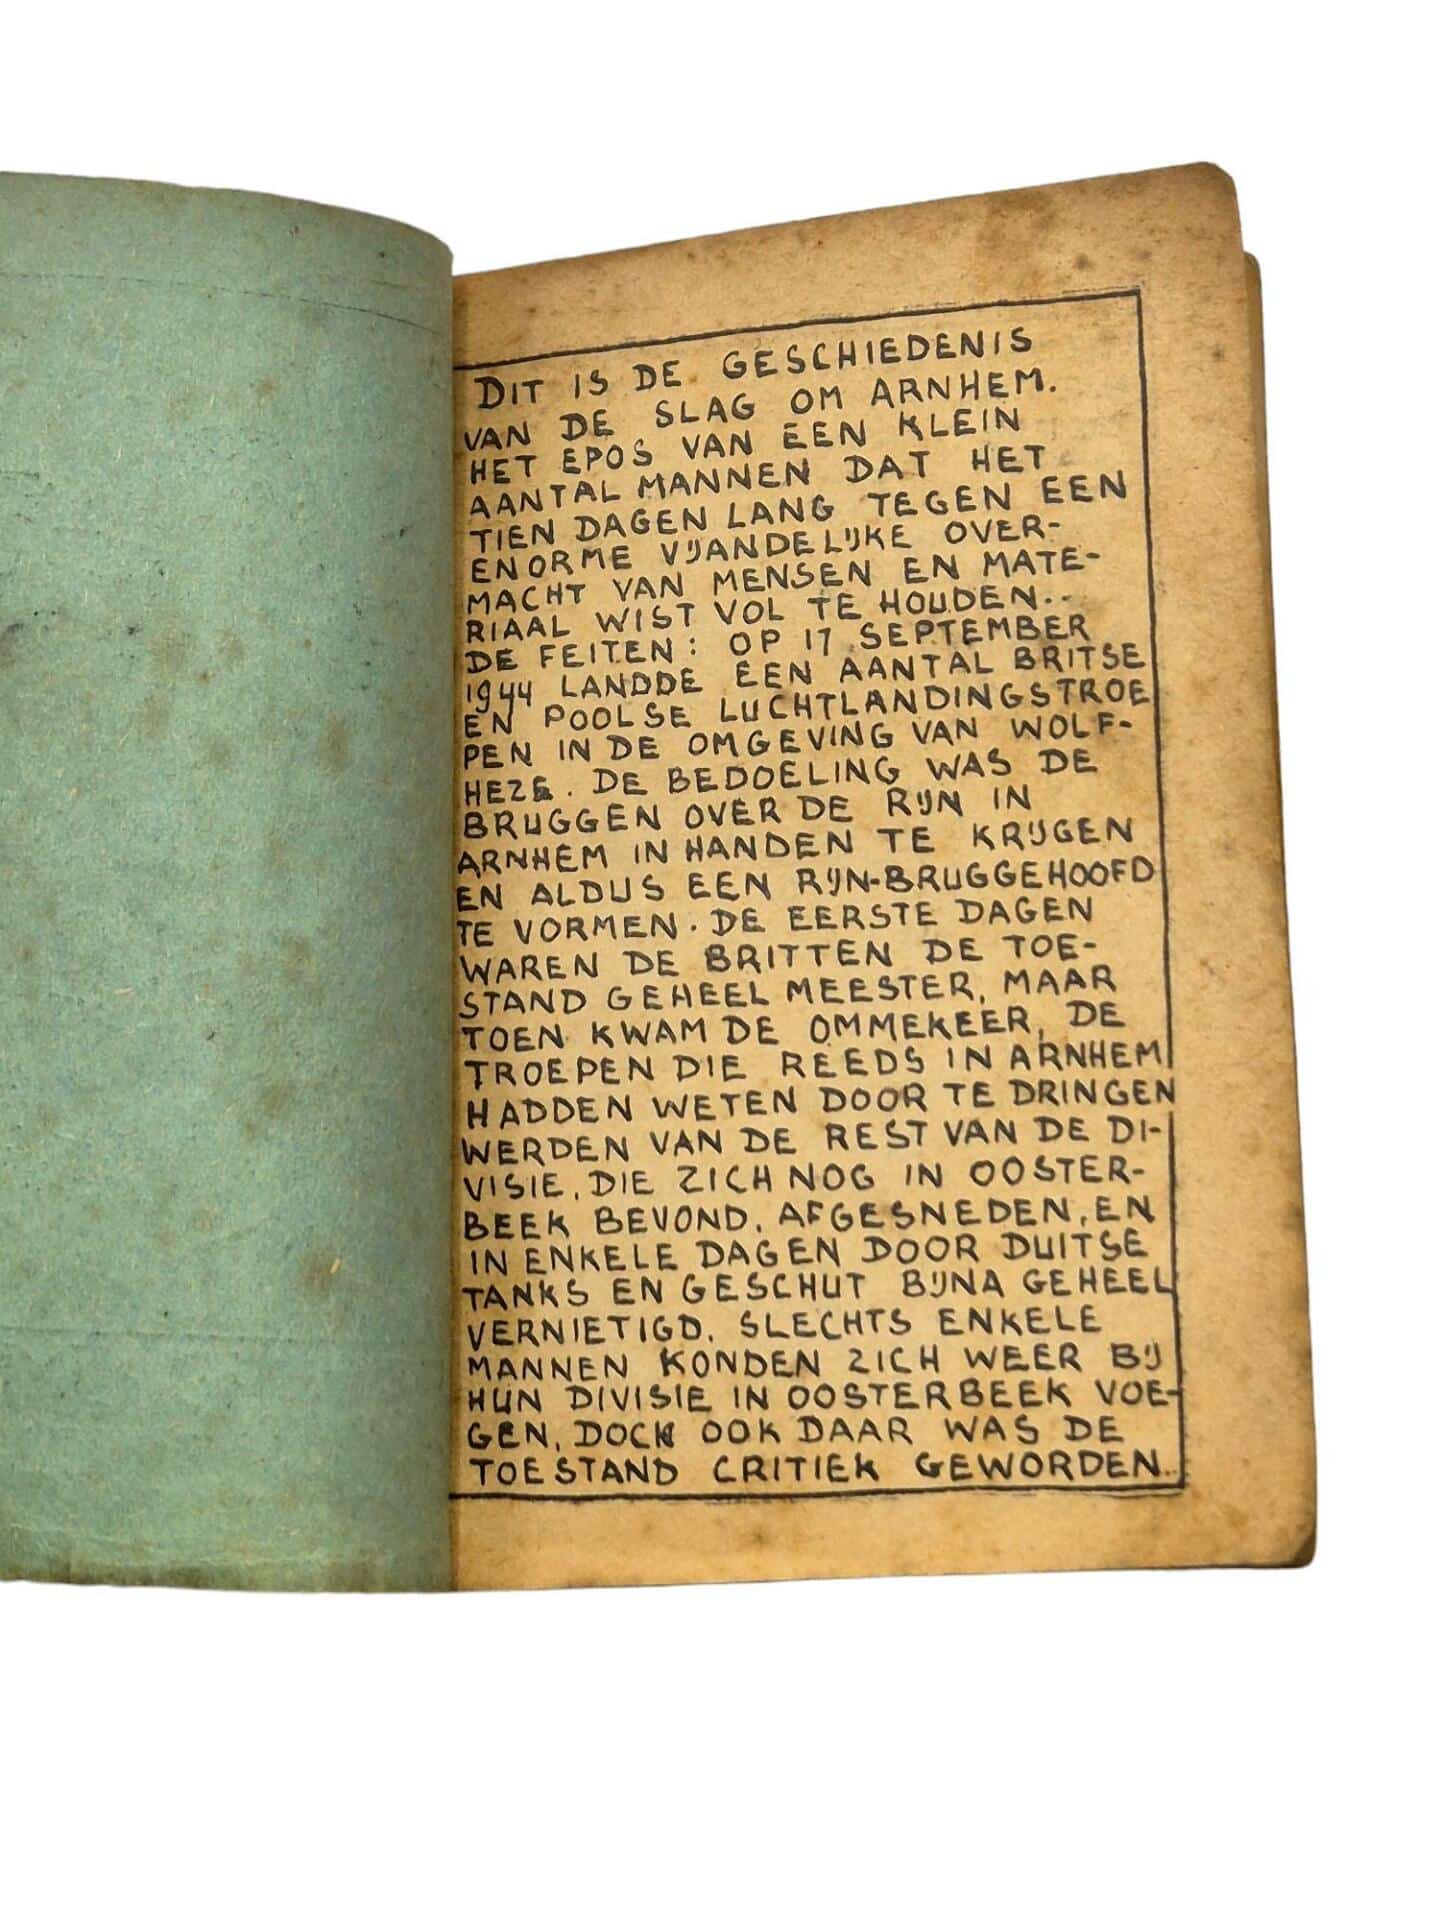 DIT IS DE GESCHIEDENIS
VAN DE SLAG OM ARNHEM.
HET EPOS VAN EEN KLEIN
AANTAL MANNEN DAT HET
TIEN DAGEN LANG TEGEN EEN
ENORME VIJANDELIJKE OVER-
MACHT VAN MENSEN EN MATE-
RIAAL WIST VOL TE HOUDEN..
DE FEITEN: OP 17 SEPTEMBER
1944 LANDDE EEN AANTAL BRITSE
EN POOLSE LUCHTLANDINGSTROE
PEN IN DE OMGEVING VAN WOLF-
HEZE. DE BEDOELING WAS DE
BRUGGEN OVER DE RIJN IN
ARNHEM IN HANDEN TE KRIJGEN
EN ALDUS EEN RIJN-BRUGGEHOOFD
TE VORMEN. DE EERSTE DAGEN
WAREN DE BRITTEN DE TOE-
STAND GEHEEL MEESTER, MAAR
TOEN KWAM DE OMMEKEER, DE
TROEPEN DIE REEDS IN ARNHEM
HADDEN WETEN DOOR TE DRINGEN
WERDEN VAN DE REST VAN DE DI-
VISIE, DIE ZICH NOG IN OOSTER-
BEEK BEVOND, AFGESNEDEN, EN
IN ENKELE DAGEN DOOR DUITSE
TANKS EN GESCHUT BIJNA GEHEEL
VERNIETIGD. SLECHTS ENKELE
MANNEN KONDEN ZICH WEER BIJ
HUN DIVISIE IN OOSTERBEEK VOE-
GEN, DOCH OOK DAAR WAS DE
TOESTAND CRITIEK GEWORDEN..